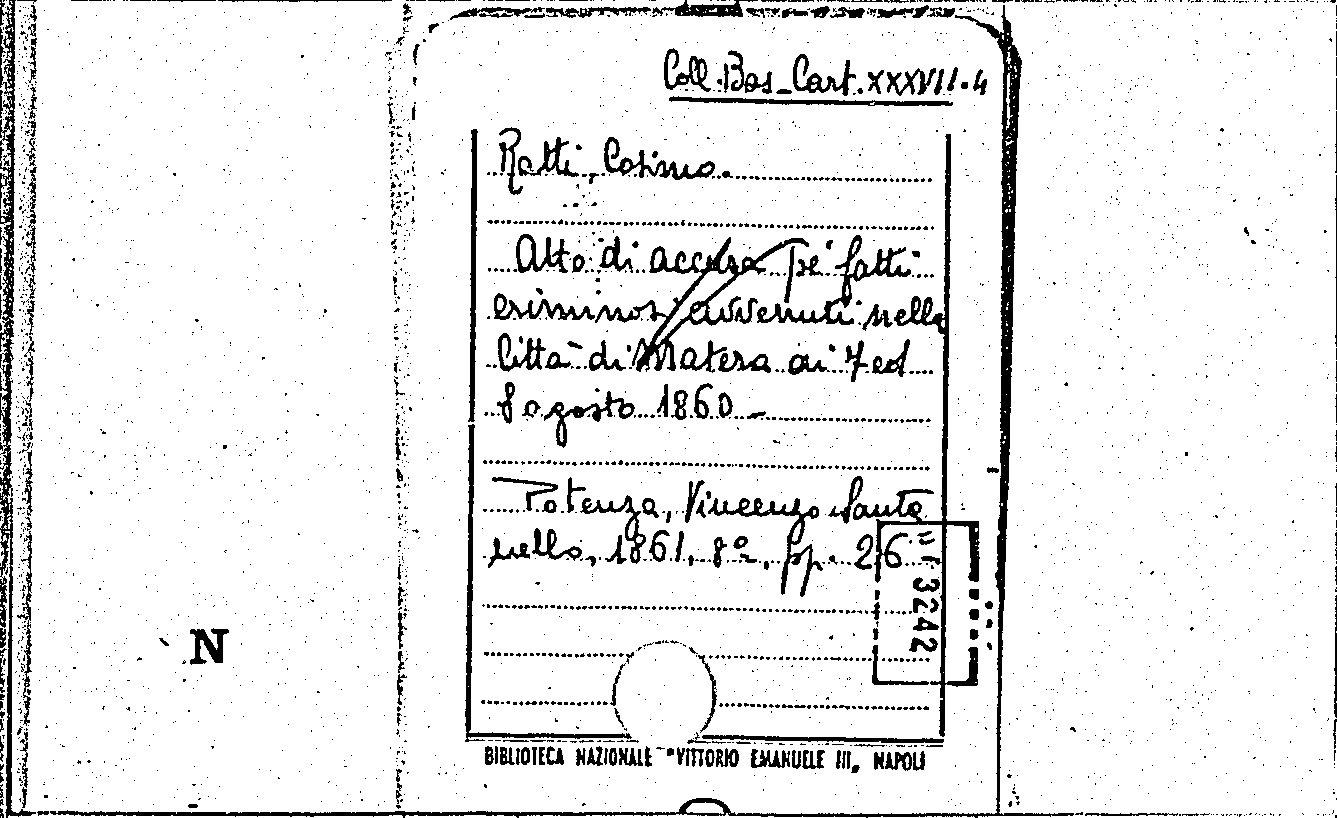 Coll. Bas_Cart. XXXVII.4
Ratti, Cosimo.
Atto di accusa pe' fatti
criminosi avvenuti nella
Città di Matera ai 7 ed
8 agosto 1860 _
Potenza, Vincenzo Santa
nello, 1861, 8º, pp. 26
3242
N
BIBLIOTECA NAZIONALE "VITTORIO EMANUELE III„ NAPOLI